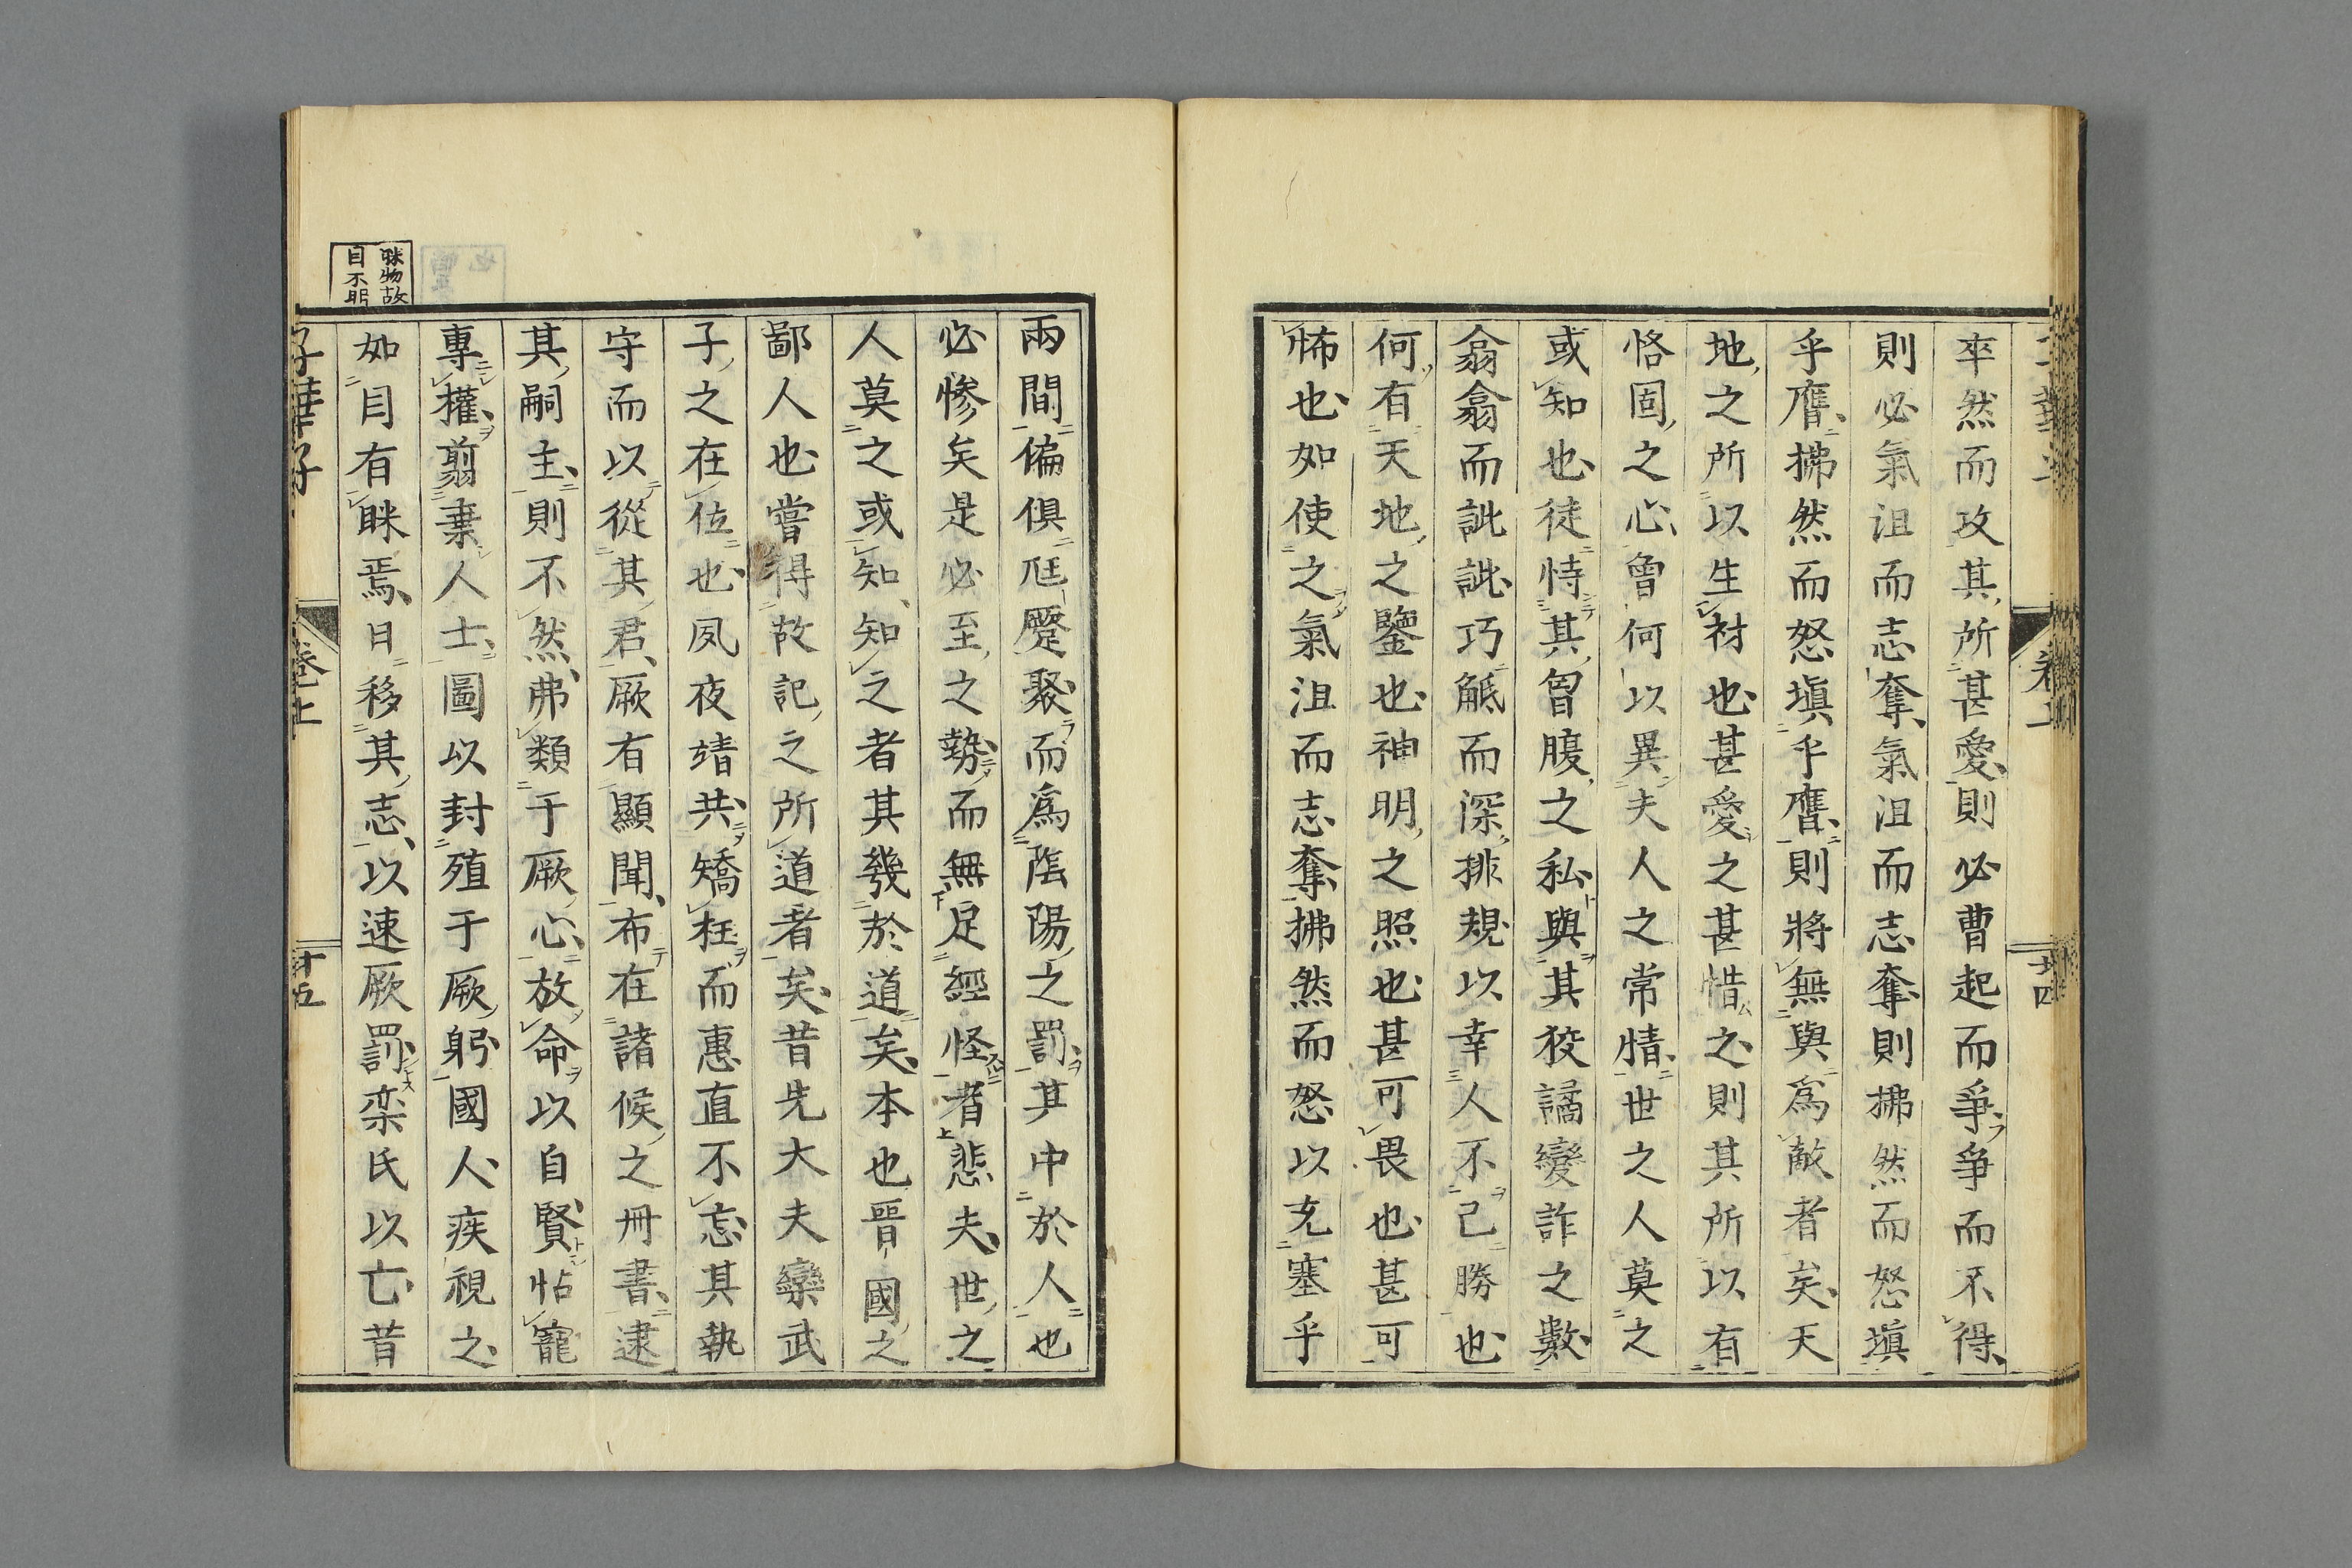 卒然而攻其所甚愛則必曹起而爭爭而不得
則必氣沮而志奪氣沮而志奪則拂然而怒塡
乎膺拂然而怒塡乎膺則將無與爲敵者矣天
地之所以生材也甚愛之甚惜之則其所以有
恪固之心曾何以異夫人之常情世之人莫之
或知也徒恃其胷腹之私與其狡譎變詐之數
翕翕而訿訿巧觝而深排規以幸人不己勝也
何有天地之鑒也神明之照也甚可畏也甚可
怖也如使之氣沮而志奪拂然而怒以充塞乎
兩間偏俱尫蹷聚而爲陰陽之罰其中於人也
必慘矣是必至之勢而無足經怪者悲夫世之
人莫之或知知之者其幾於道矣本也晉國之
鄙人也嘗得故記之所道者矣昔先大夫欒武
子之在位也夙夜靖共矯枉而惠直不忘其執
守而以從其君厥有顯聞布在諸侯之冊書逮
其嗣主則不然弗類于厥心放命以自賢怙寵
專權翦棄人士圖以封殖于厥躬國人疾視之
如目有眯焉日移其志以速厥罰栾氏以亡昔
眯物故
目不明
子華子
卷上
十五